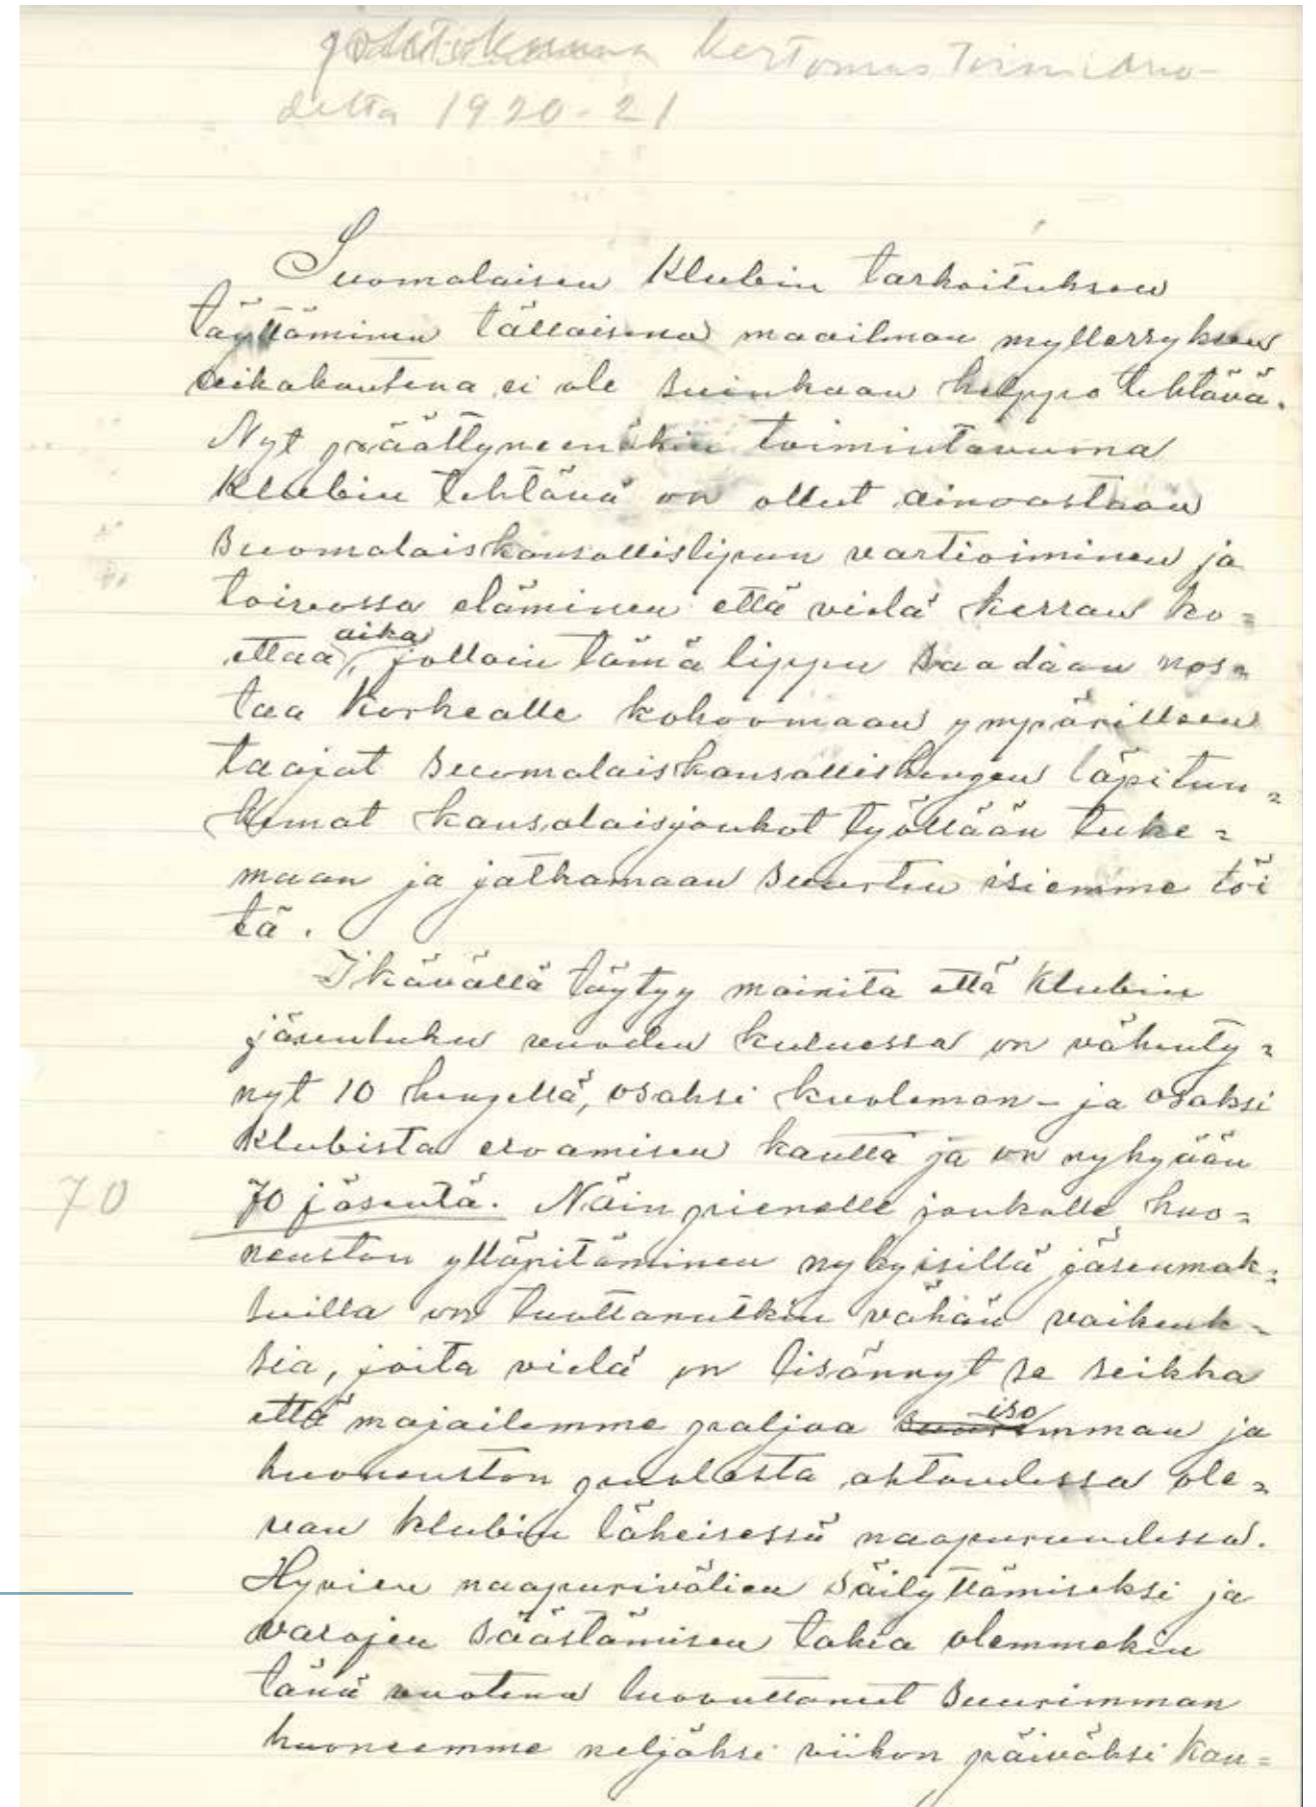 johtokunna kertomus toimivuo-
delta 1920-21
Suomalaisen Klubin tarkoituksen
täyttäminen tällaisena maailman myllerryksen
aikakautena ei ole suinkaan helppo tehtävä.
Nyt päättyneenäkin toimintavuonna
Klubin tehtävä on ollut ainoastaan
suomalaiskansallislipun vartioiminen ja
toivossa eläminen että vielä kerran ko=
ittaa aika, jolloin tämä lippu saadaan nos=
taa korkealle kokoomaan ympärilleen
taajat suomalaiskansallishengen läpitun=
kemat kansalaisjoukot työllään tuke=
maan ja jatkamaan suurten isiemme töi
tä.
Ikävällä täytyy mainita että Klubin
jäsenluku vuoden kuluessa on vähenty=
nyt 10 hengellä, osaksi kuoleman- ja osaksi
Klubista eroamisen kautta ja on nykyään
70
70 jäsentä. Näin pienelle joukolle huo=
neuston ylläpitäminen nykyisillä jäsenmak=
suilla on tuottanutkin vähän vaikeuk=
sia, joita vielä on lisännyt se seikka
että majailemme paljoa isomman ja
huoneuston puolesta ahtaudessa ole=
van klubin läheisessä naapuruudessa.
Hyvien naapurivälien säilyttämiseksi ja
varojen säästämisen takia olemmekin
tänä vuotena luovuttanut suurimman
huoneemme neljäksi viikon päiväksi Kan=